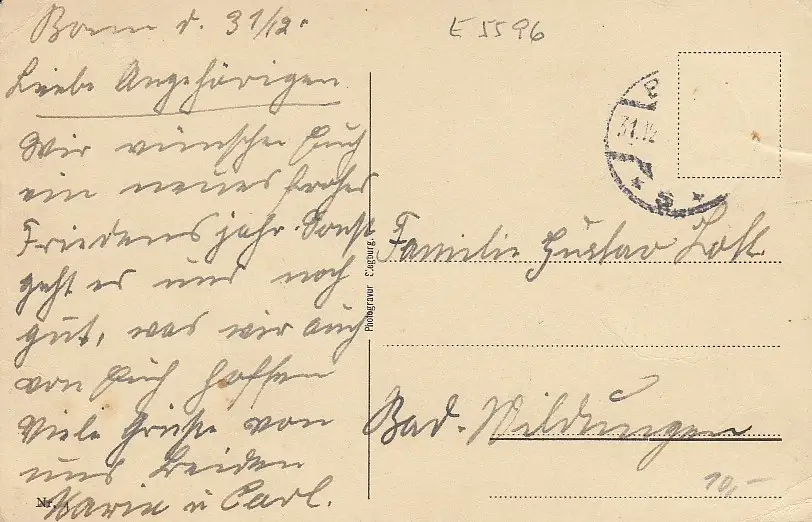 Bonn d. 31/12.
Liebe Angehörigen
Wir wünschen Euch
ein neues frohes
Friedensjahr. Sonst
geht es uns noch
gut, was wir auch
von Euch hoffen
Viele Grüße von
uns beiden
Karin u Carl.
Nr.
E 5596
31.12
Photogravur Siegburg.
Familie Gustav
Bad-Wildungen
10,-